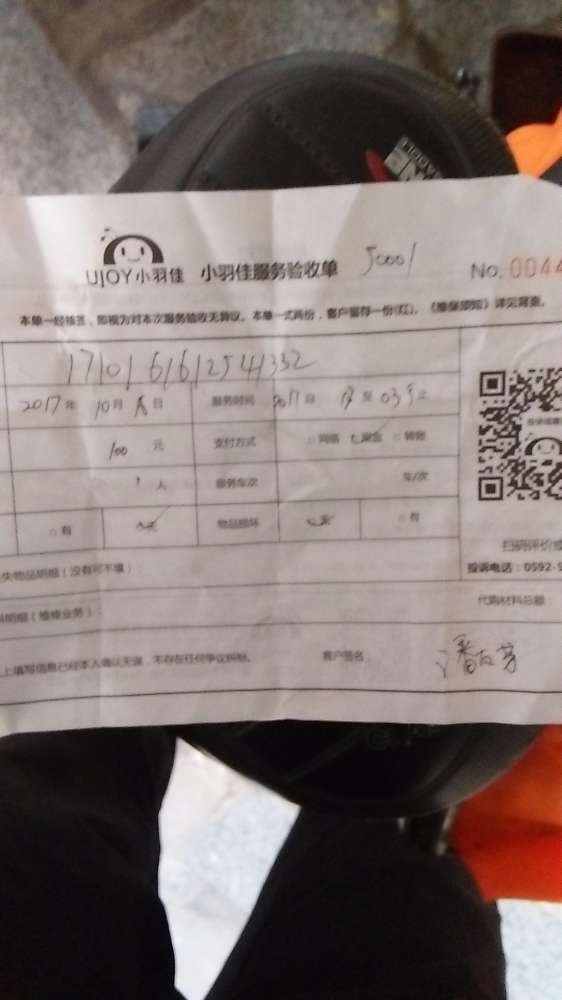 UJOY小羽佳 小羽佳服务验收单 50001 No. 0044
本单一经核签，即视为对本次服务验收无异议。本单一式两份，客户留存一份(红)。《维保须知》详见背面。
1710161612541332
2017年 10月 日 服务时间 至
100 元 支付方式 □网络 现金 □转账
1 人 服务车次 车/次
□有 □无 物品损坏 □无 □有
扫码评价或
失物品明细（没有可不填）： 投诉电话：0592-5
料明细（维修业务）： 代购材料总额：
上填写信息已经本人确认无误，不存在任何争议纠纷。 客户签名：